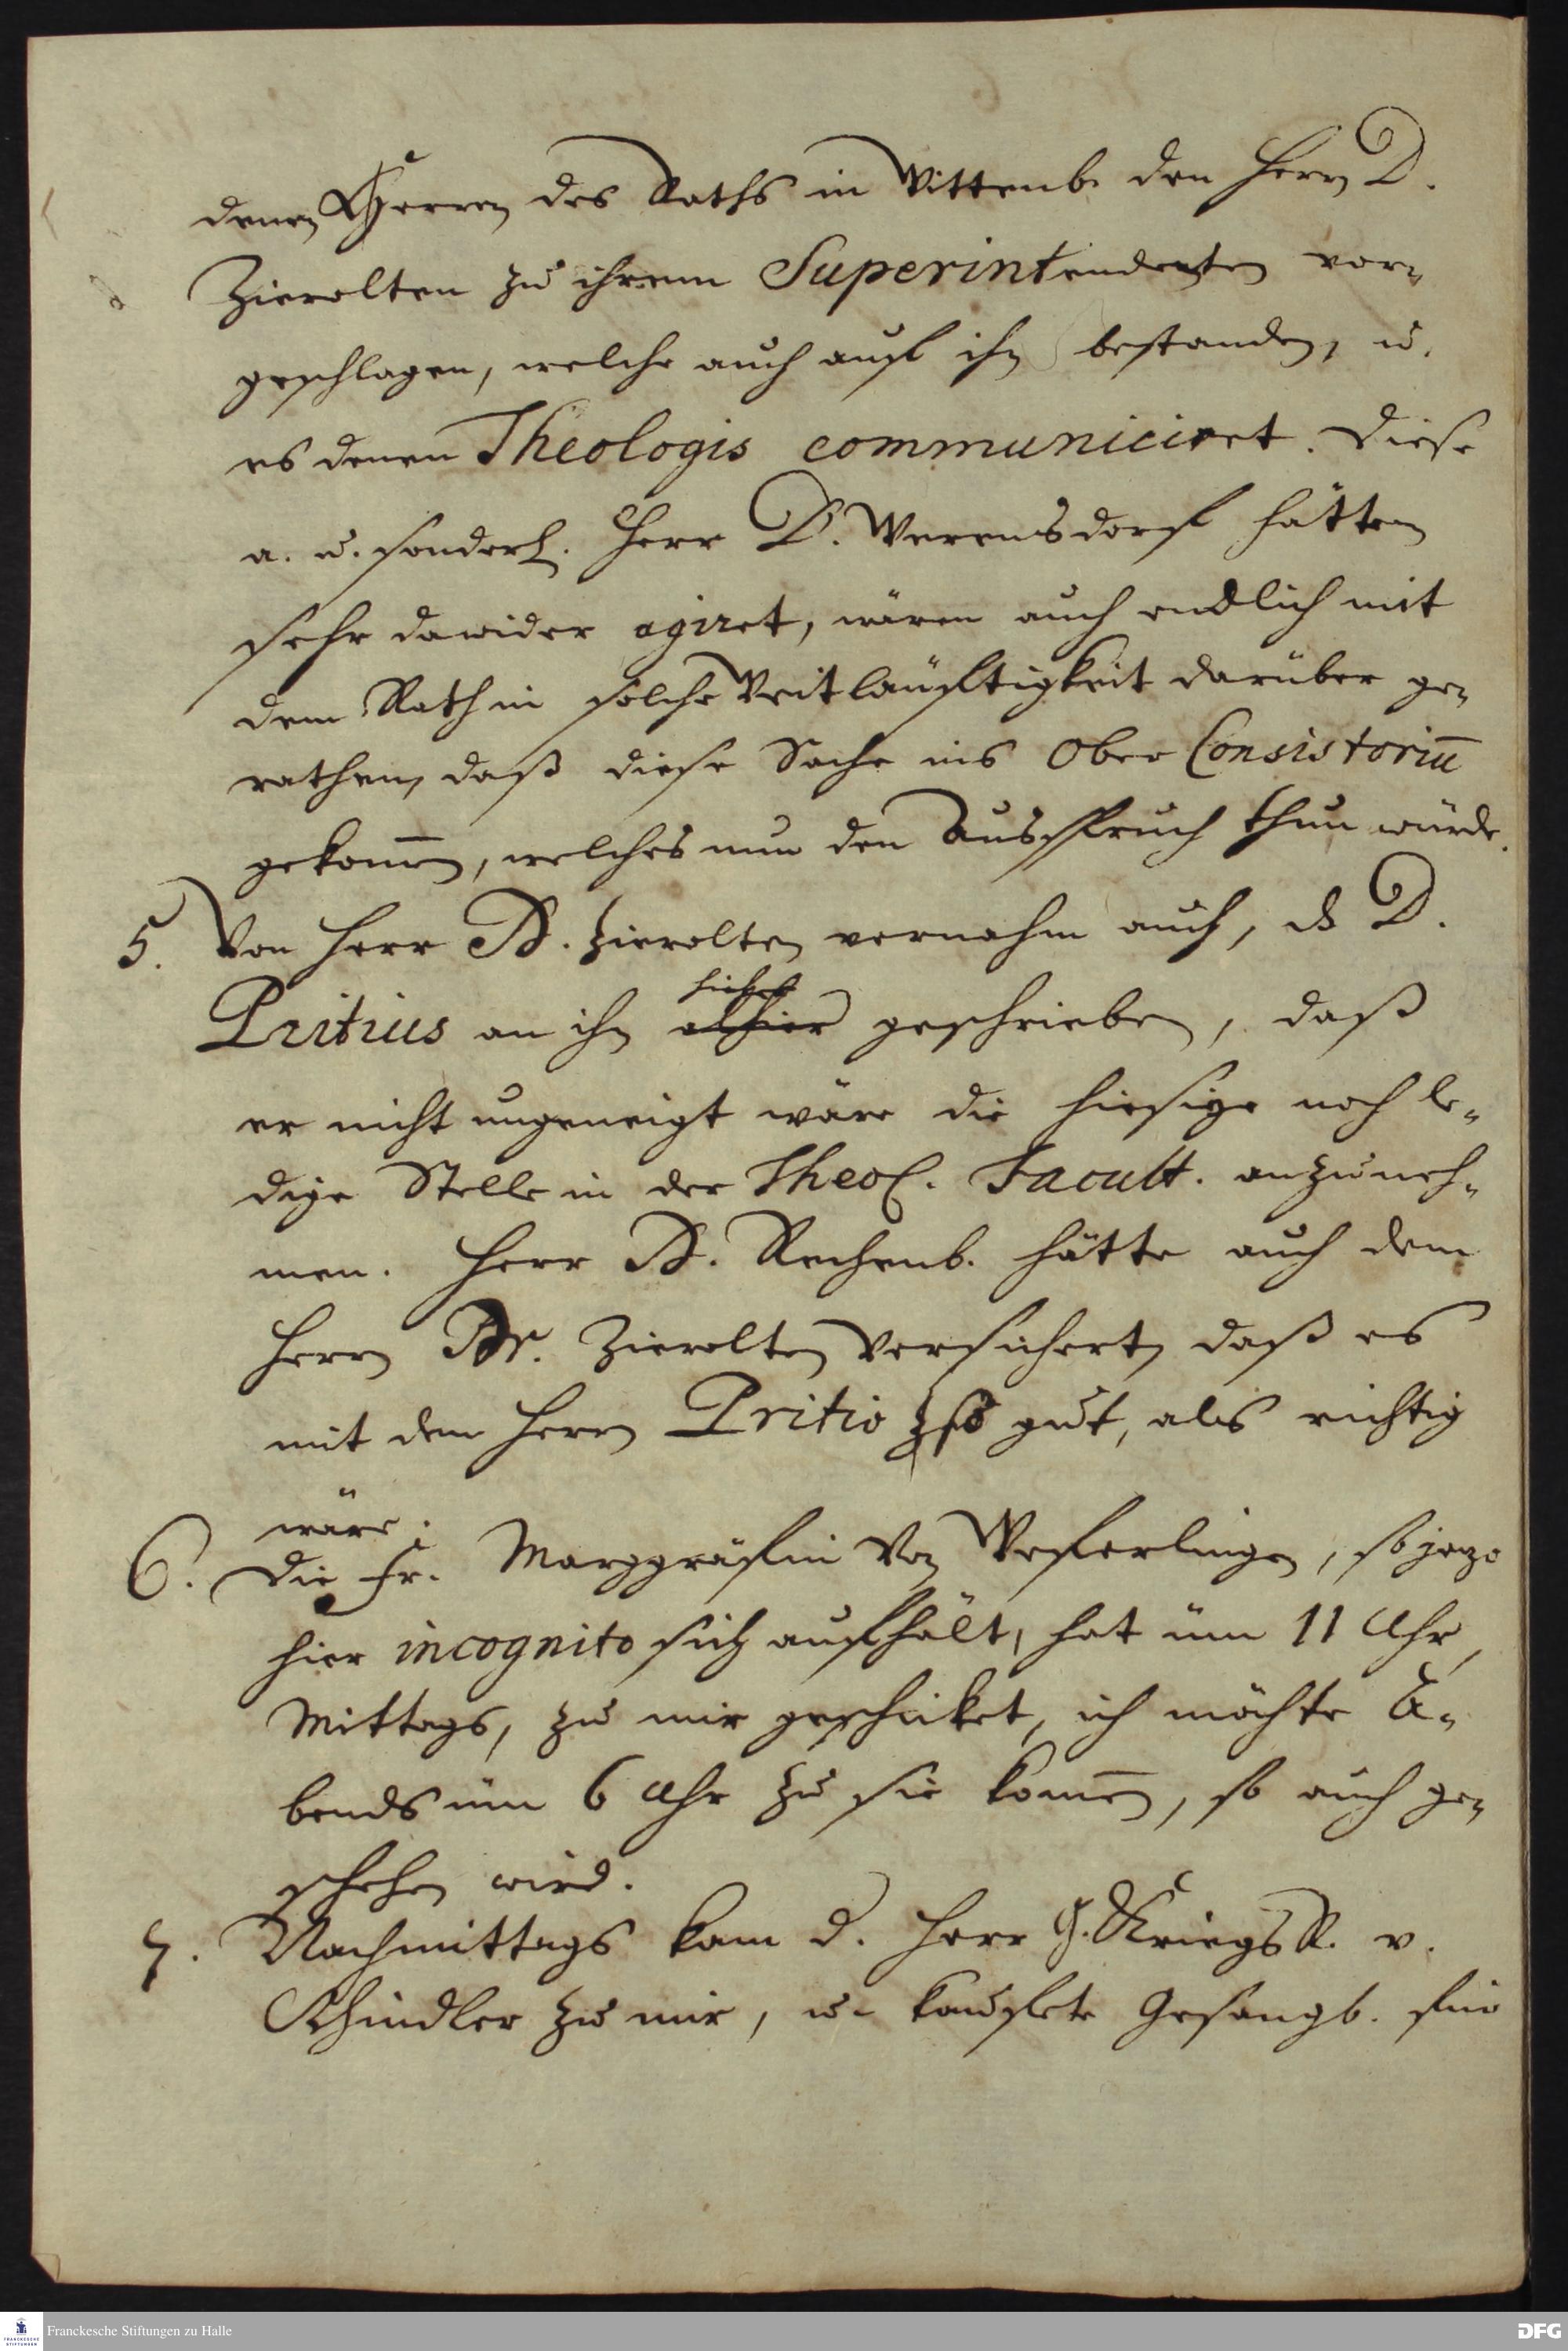 denen Herren des Raths in Wittenb. den Herrn D.
Zierolten zu ihrem Superintendenten vor-
geschlagen, welche auch auf ihn bestanden, u.
es denen Theologis communiciret. Diese
a. u. sonderl. Herr D. Wernsdorff hätten
sehr dawider agiret, wären auch endlich mit
dem Rath in solche Weitläufftigkeit darüber ge-
rathen, daß diese Sache ins Ober Consistoriū
gekom̄en, welches nun den Ausspruch thun würde.
5. Von Herr D. Zierolten vernahm auch, dß D.
Pritius an ihn hieher alhier geschrieben, daß
er nicht ungeneigt wäre die hiesige noch le-
dige Stelle in der Theol. Facult. anzuneh-
men. Herr D. Rechenb. hätte auch dem
Herrn Dr. Zierolten versichert, daß es
mit dem Herrn Pritio so gut, als richtig
wäre.
6. Die Fr. Marggräfin von Weferlingen, so jezo
hier incognito sich aufhält, hat üm 11 Uhr,
Mittags, zu mir geschicket, ich möchte A-
bends üm 6 Uhr zu sie kom̄en, so auch ge-
schehen wird.
7. Nachmittags kam d. Herr G. Kriegs R. v.
Schindler zu mir, u. kauffete Gesangb. für
Franckesche Stiftungen zu Halle
FRANCKESCHE STIFTUNGEN
DFG